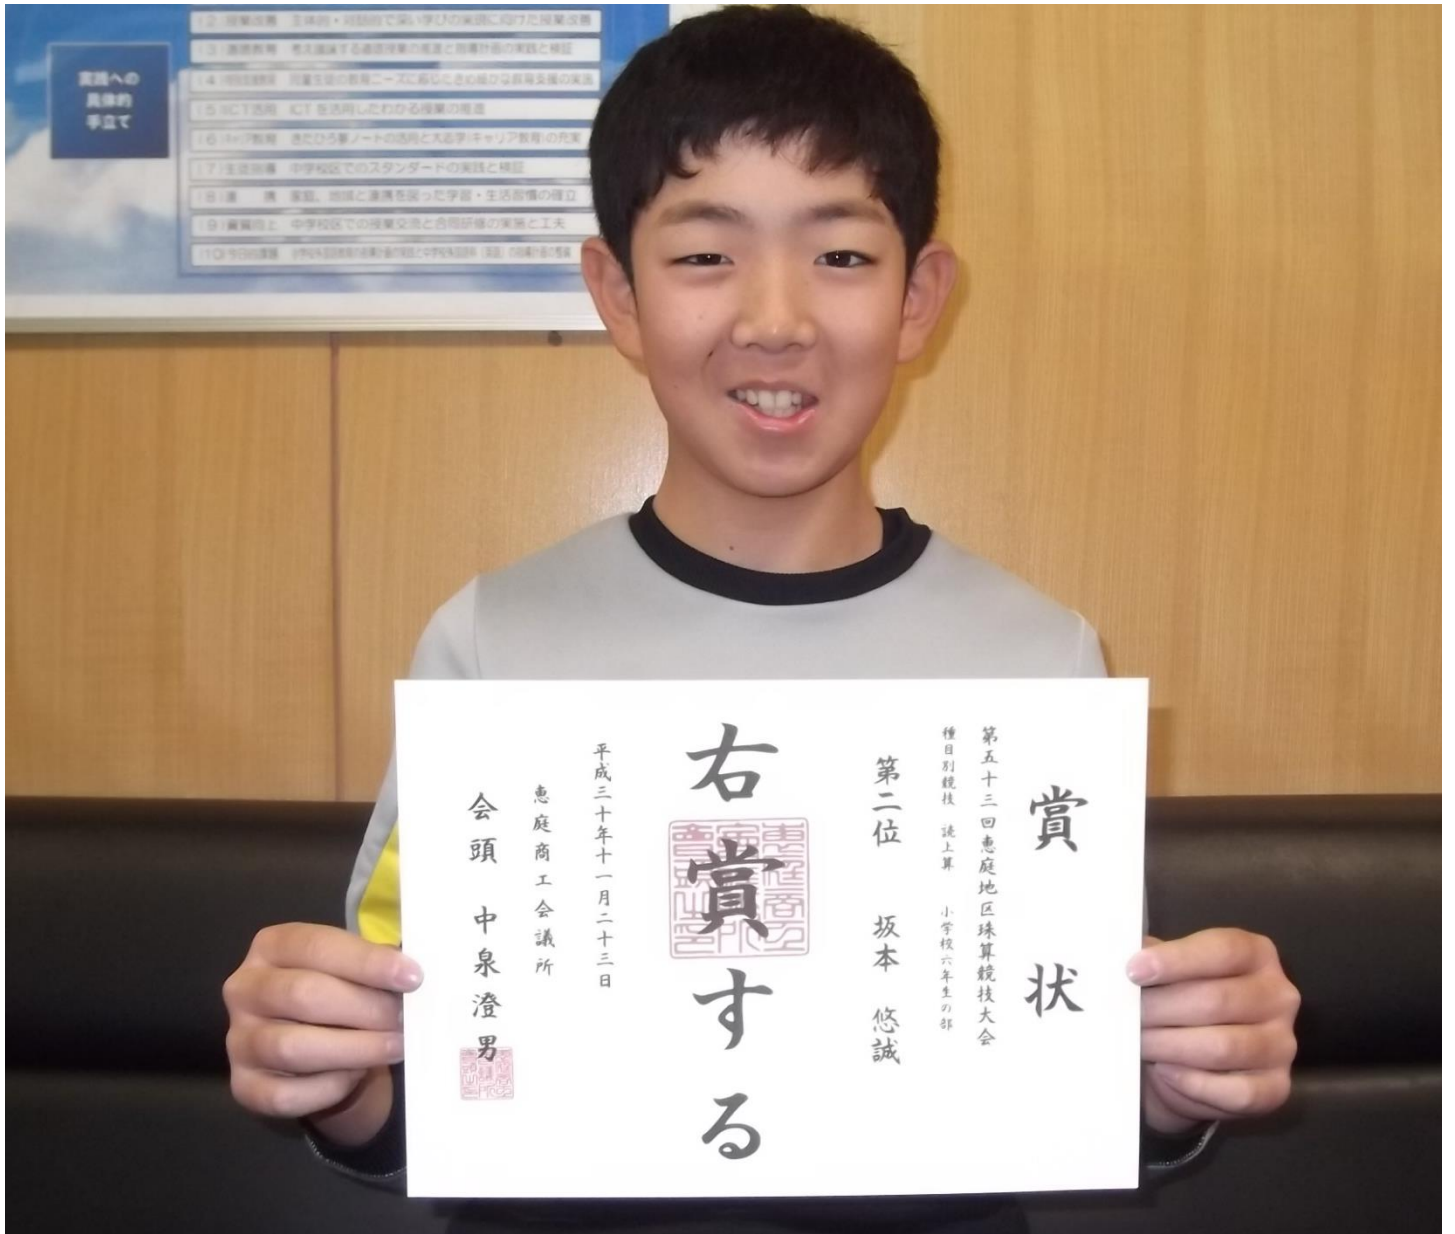 実践への
具体的
手立て
(2)授業改善 主体的・対話的で深い学びの実現に向けた授業改善
(3)道徳教育 考え議論する道徳授業の推進と指導計画の実践と検証
(4)特別支援教育 児童生徒の教育ニーズに応じたきめ細かな教育支援の実践
(5)ICT活用 ICTを活用したわかる授業の推進
(6)キャリア教育 きたひろ夢ノートの活用と大志学(キャリア教育)の充実
(7)生徒指導 中学校区でのスタンダードの実践と検証
(8)連 携 家庭、地域と連携を図った学習・生活習慣の確立
(9)資質向上 中学校区での授業交流と合同研修の実施と工夫
(10)今日的課題
賞状
第五十三回恵庭地区珠算競技大会
種目別競技 読上算 小学校六年生の部
第二位 坂本 悠誠
右賞する
平成三十年十一月二十三日
恵庭商工会議所
会頭 中泉澄男